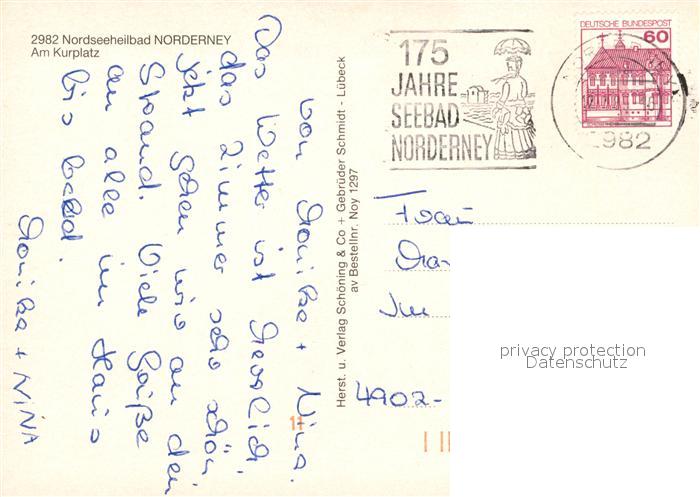 2982 Nordseeheilbad NORDERNEY
Am Kurplatz
175
JAHRE
SEEBAD
NORDERNEY
DEUTSCHE BUNDESPOST
60
2982
von Monika + Nina.
Das Wetter ist herrlich.
das Zimmer sehr schön,
jetzt gehen wir an den
Strand. Viele Grüße
an alle im Haus
bis bald.
Monika + NINA
Herst. u. Verlag Schöning & Co + Gebrüder Schmidt - Lübeck
av Bestellnr. Noy 1297
Frau
Im
4902-
11
privacy protection
Datenschutz